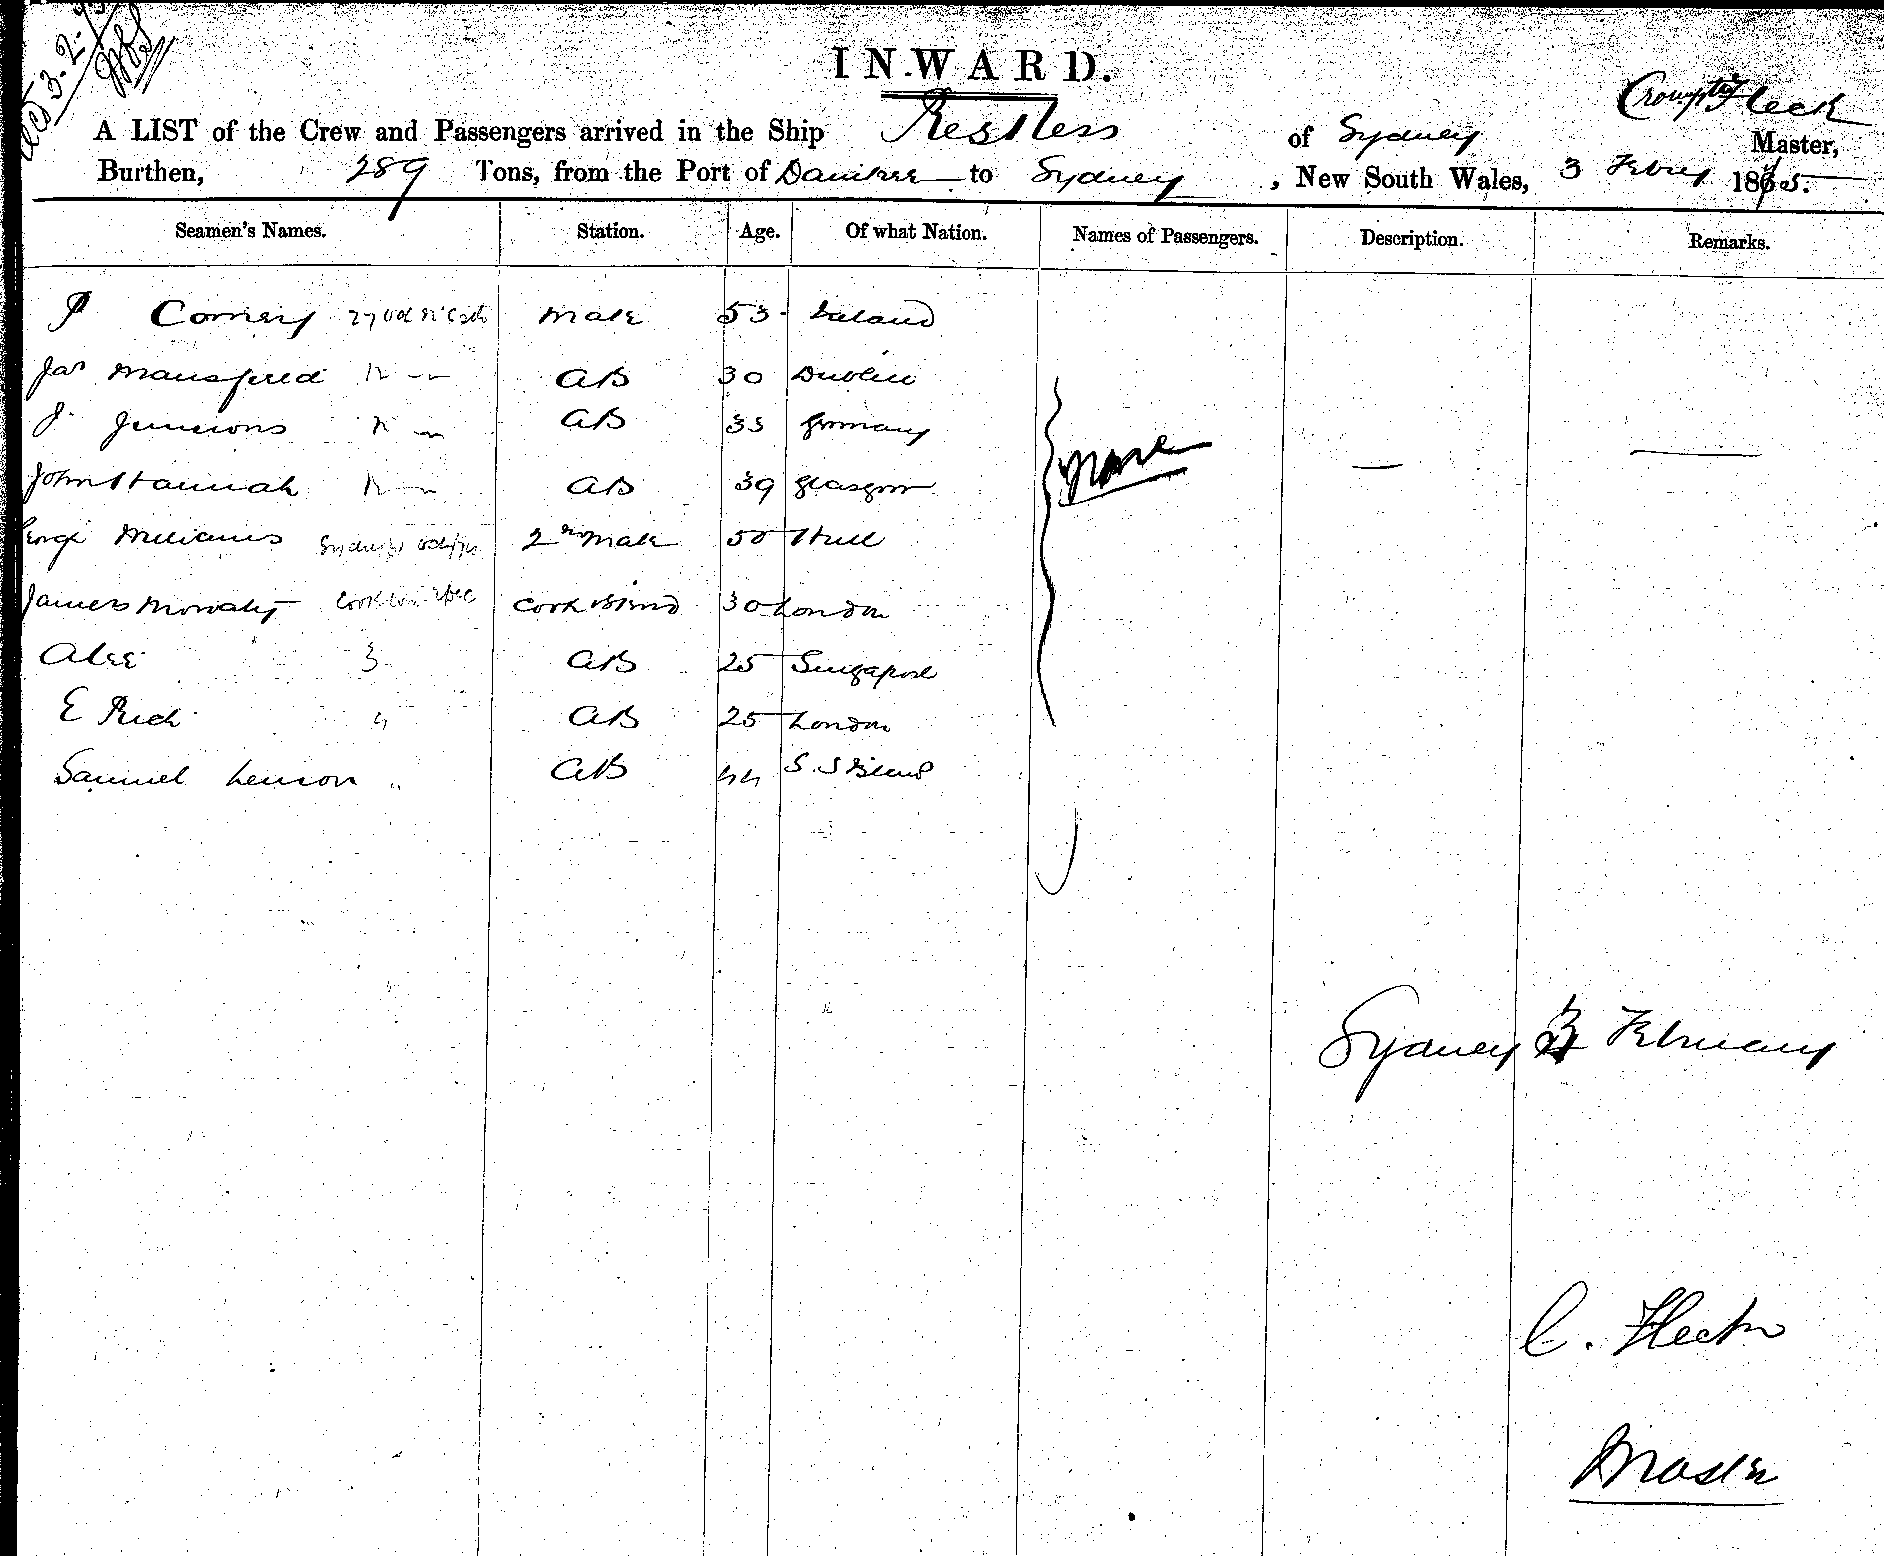 3-2-
INWARD.
A LIST of the Crew and Passengers arrived in the Ship Restless of Sydney Master,
Burthen, 289 Tons, from the Port of to Sydney, New South Wales, 3 Febry 18
Seamen's Names. Station. Age. Of what Nation. Names of Passengers. Description. Remarks.
P Mate 53 Ireland
Jas Mansfield AB 30 Dublin
J. AB 33 Germany
John Hannah AB 39 Glasgow
George Williams 2nd Mate 50 Hull
None — —
James Cook & Stwd 30 London
Alee 3 AB 25 Singapore
E Rich 4 AB 25 London
Samuel Lennon " AB 44 S. S Island
Sydney 3 February
C. Fleck
Master